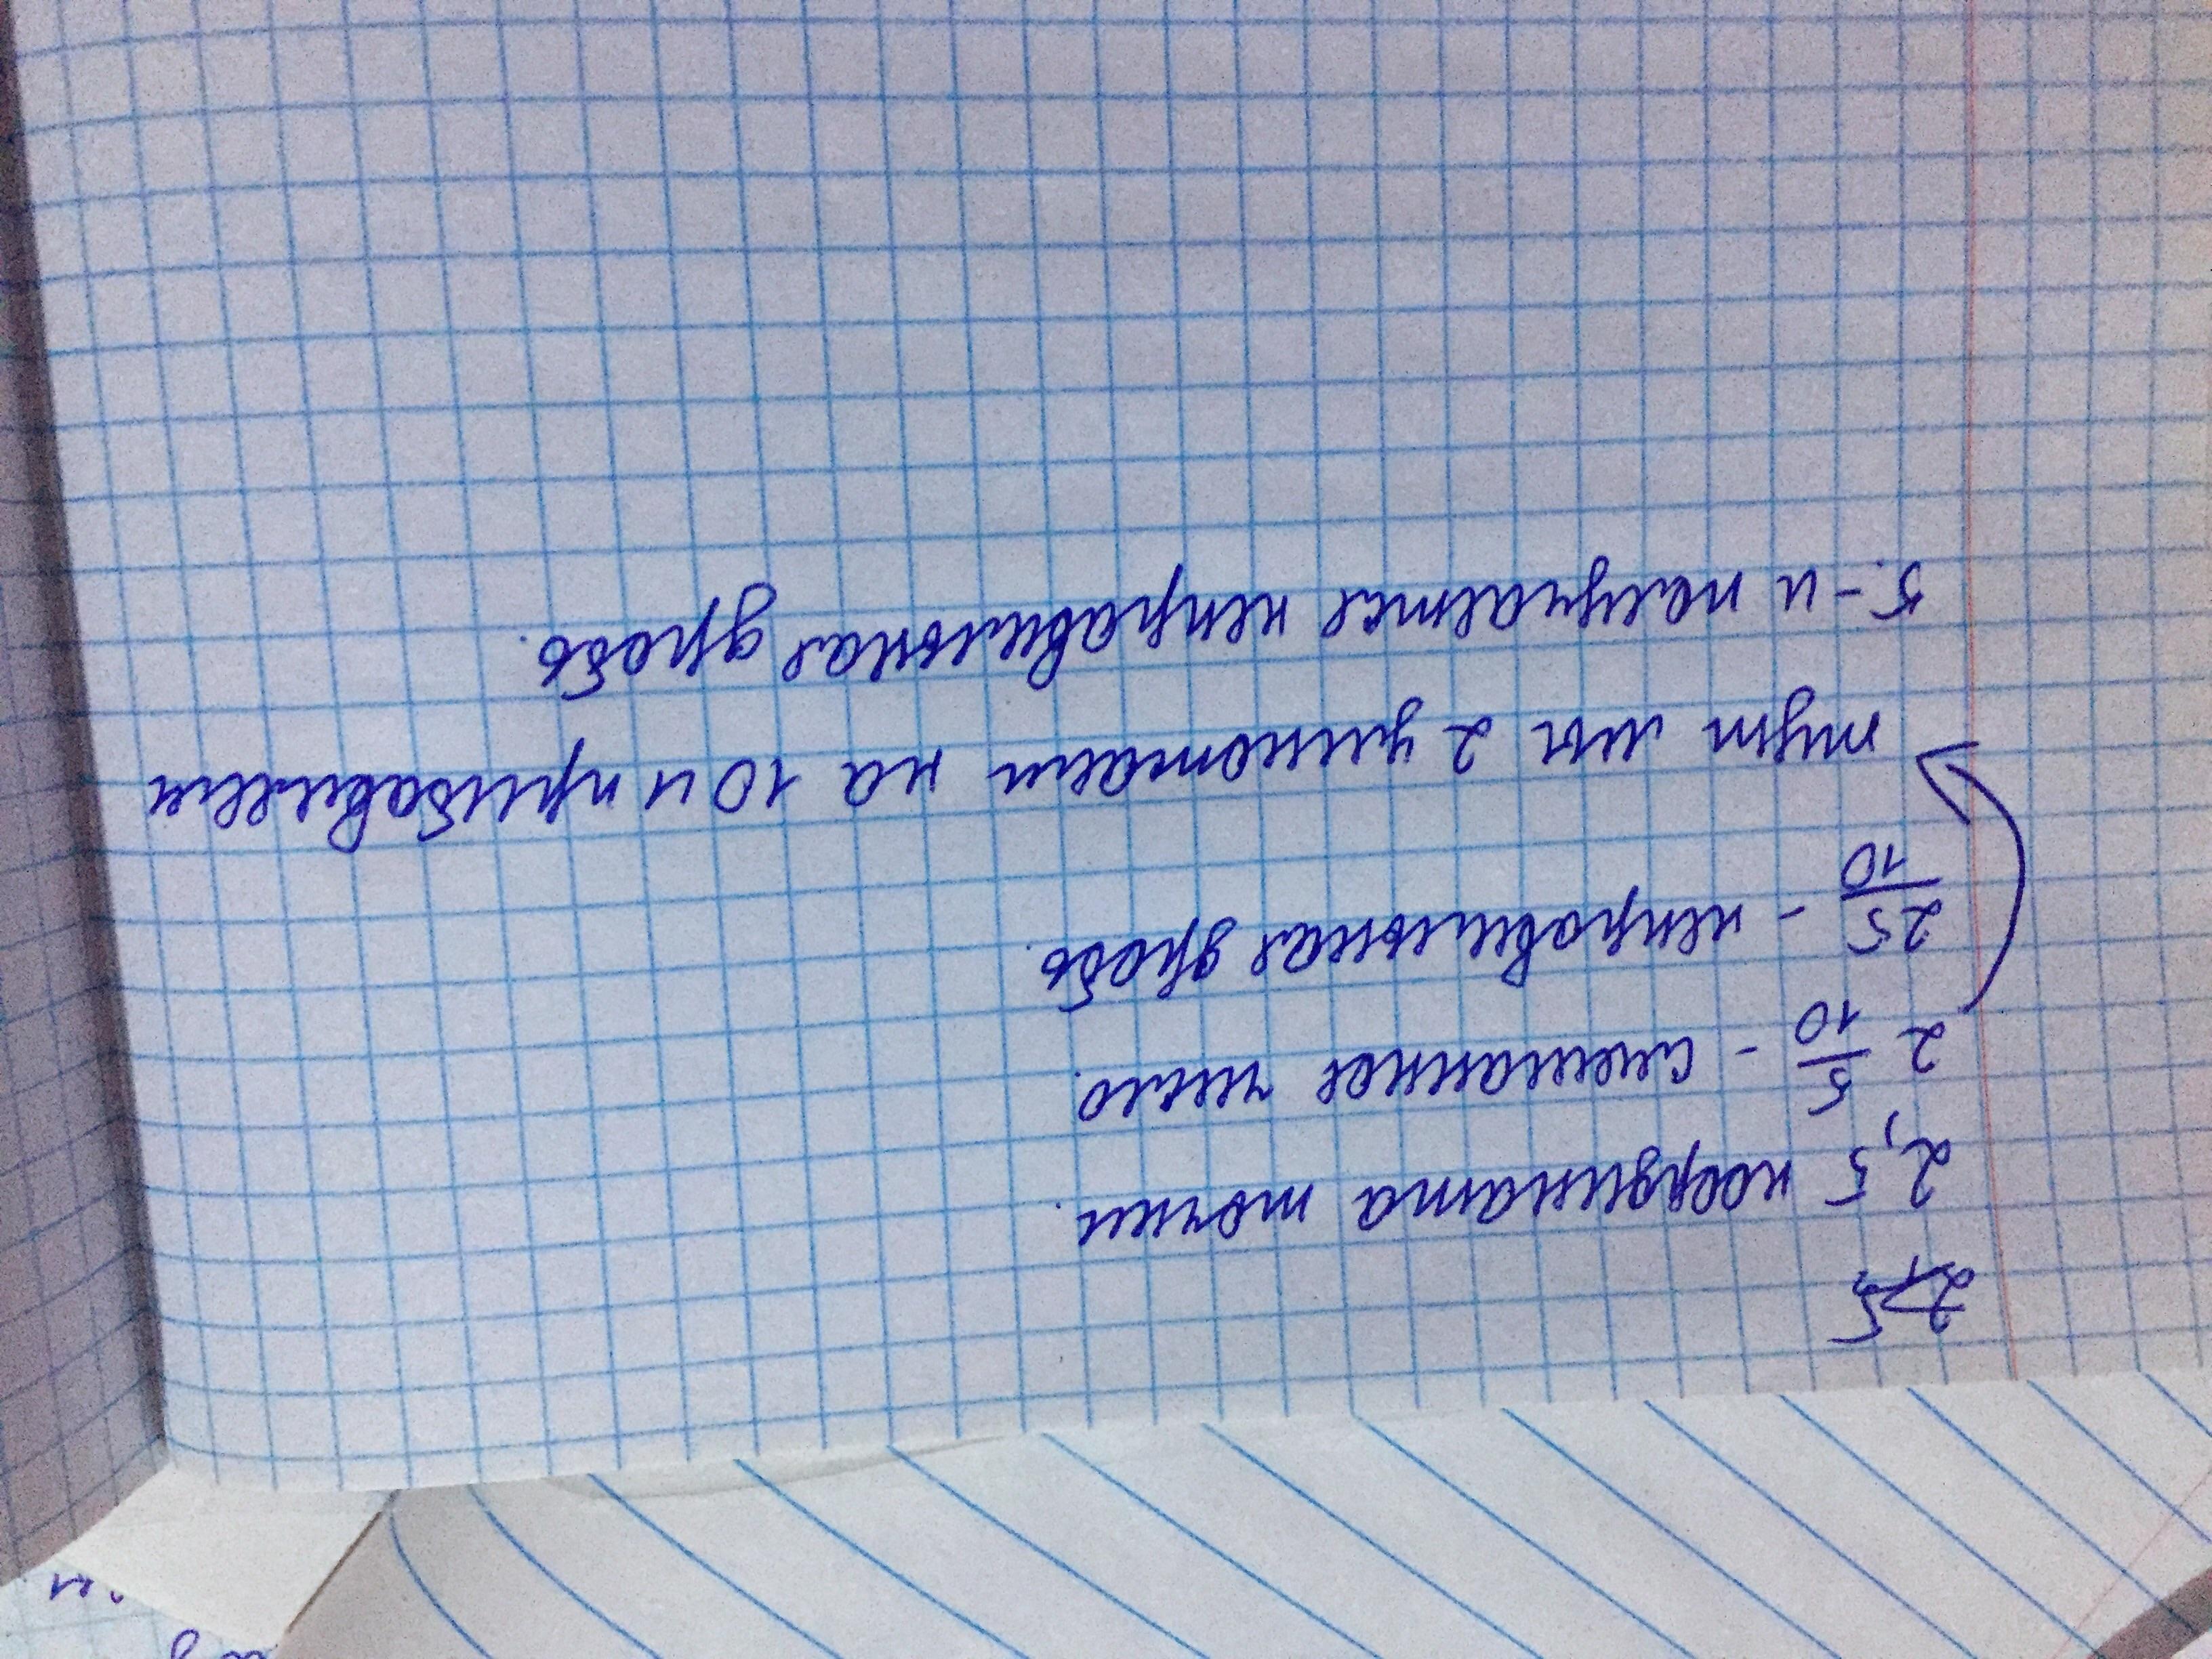 2,5 координата точки.
2 5/10 - смешанное число.
25/10 - неправильная дробь.
тут мы 2 умножаем на 10 и прибавляем
5. - и получается неправильная дробь.